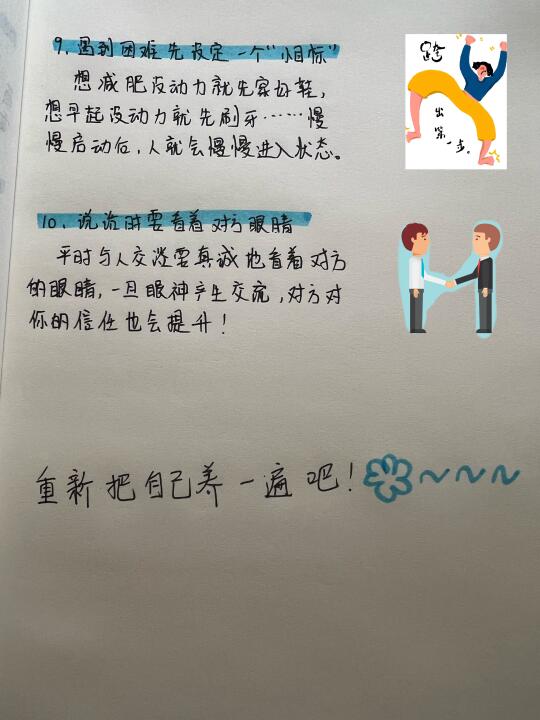 9. 遇到困难先设定一个“小目标”
想减肥没动力就先穿好鞋，
想早起没动力就先刷牙……慢
慢启动后，人就会慢慢进入状态。
跨
出
第
一
步。
10. 说话时要看着对方眼睛
平时与人交谈要真诚地看着对方
的眼睛，一旦眼神产生交流，对方对
你的信任也会提升！
重新把自己养一遍吧！～～～